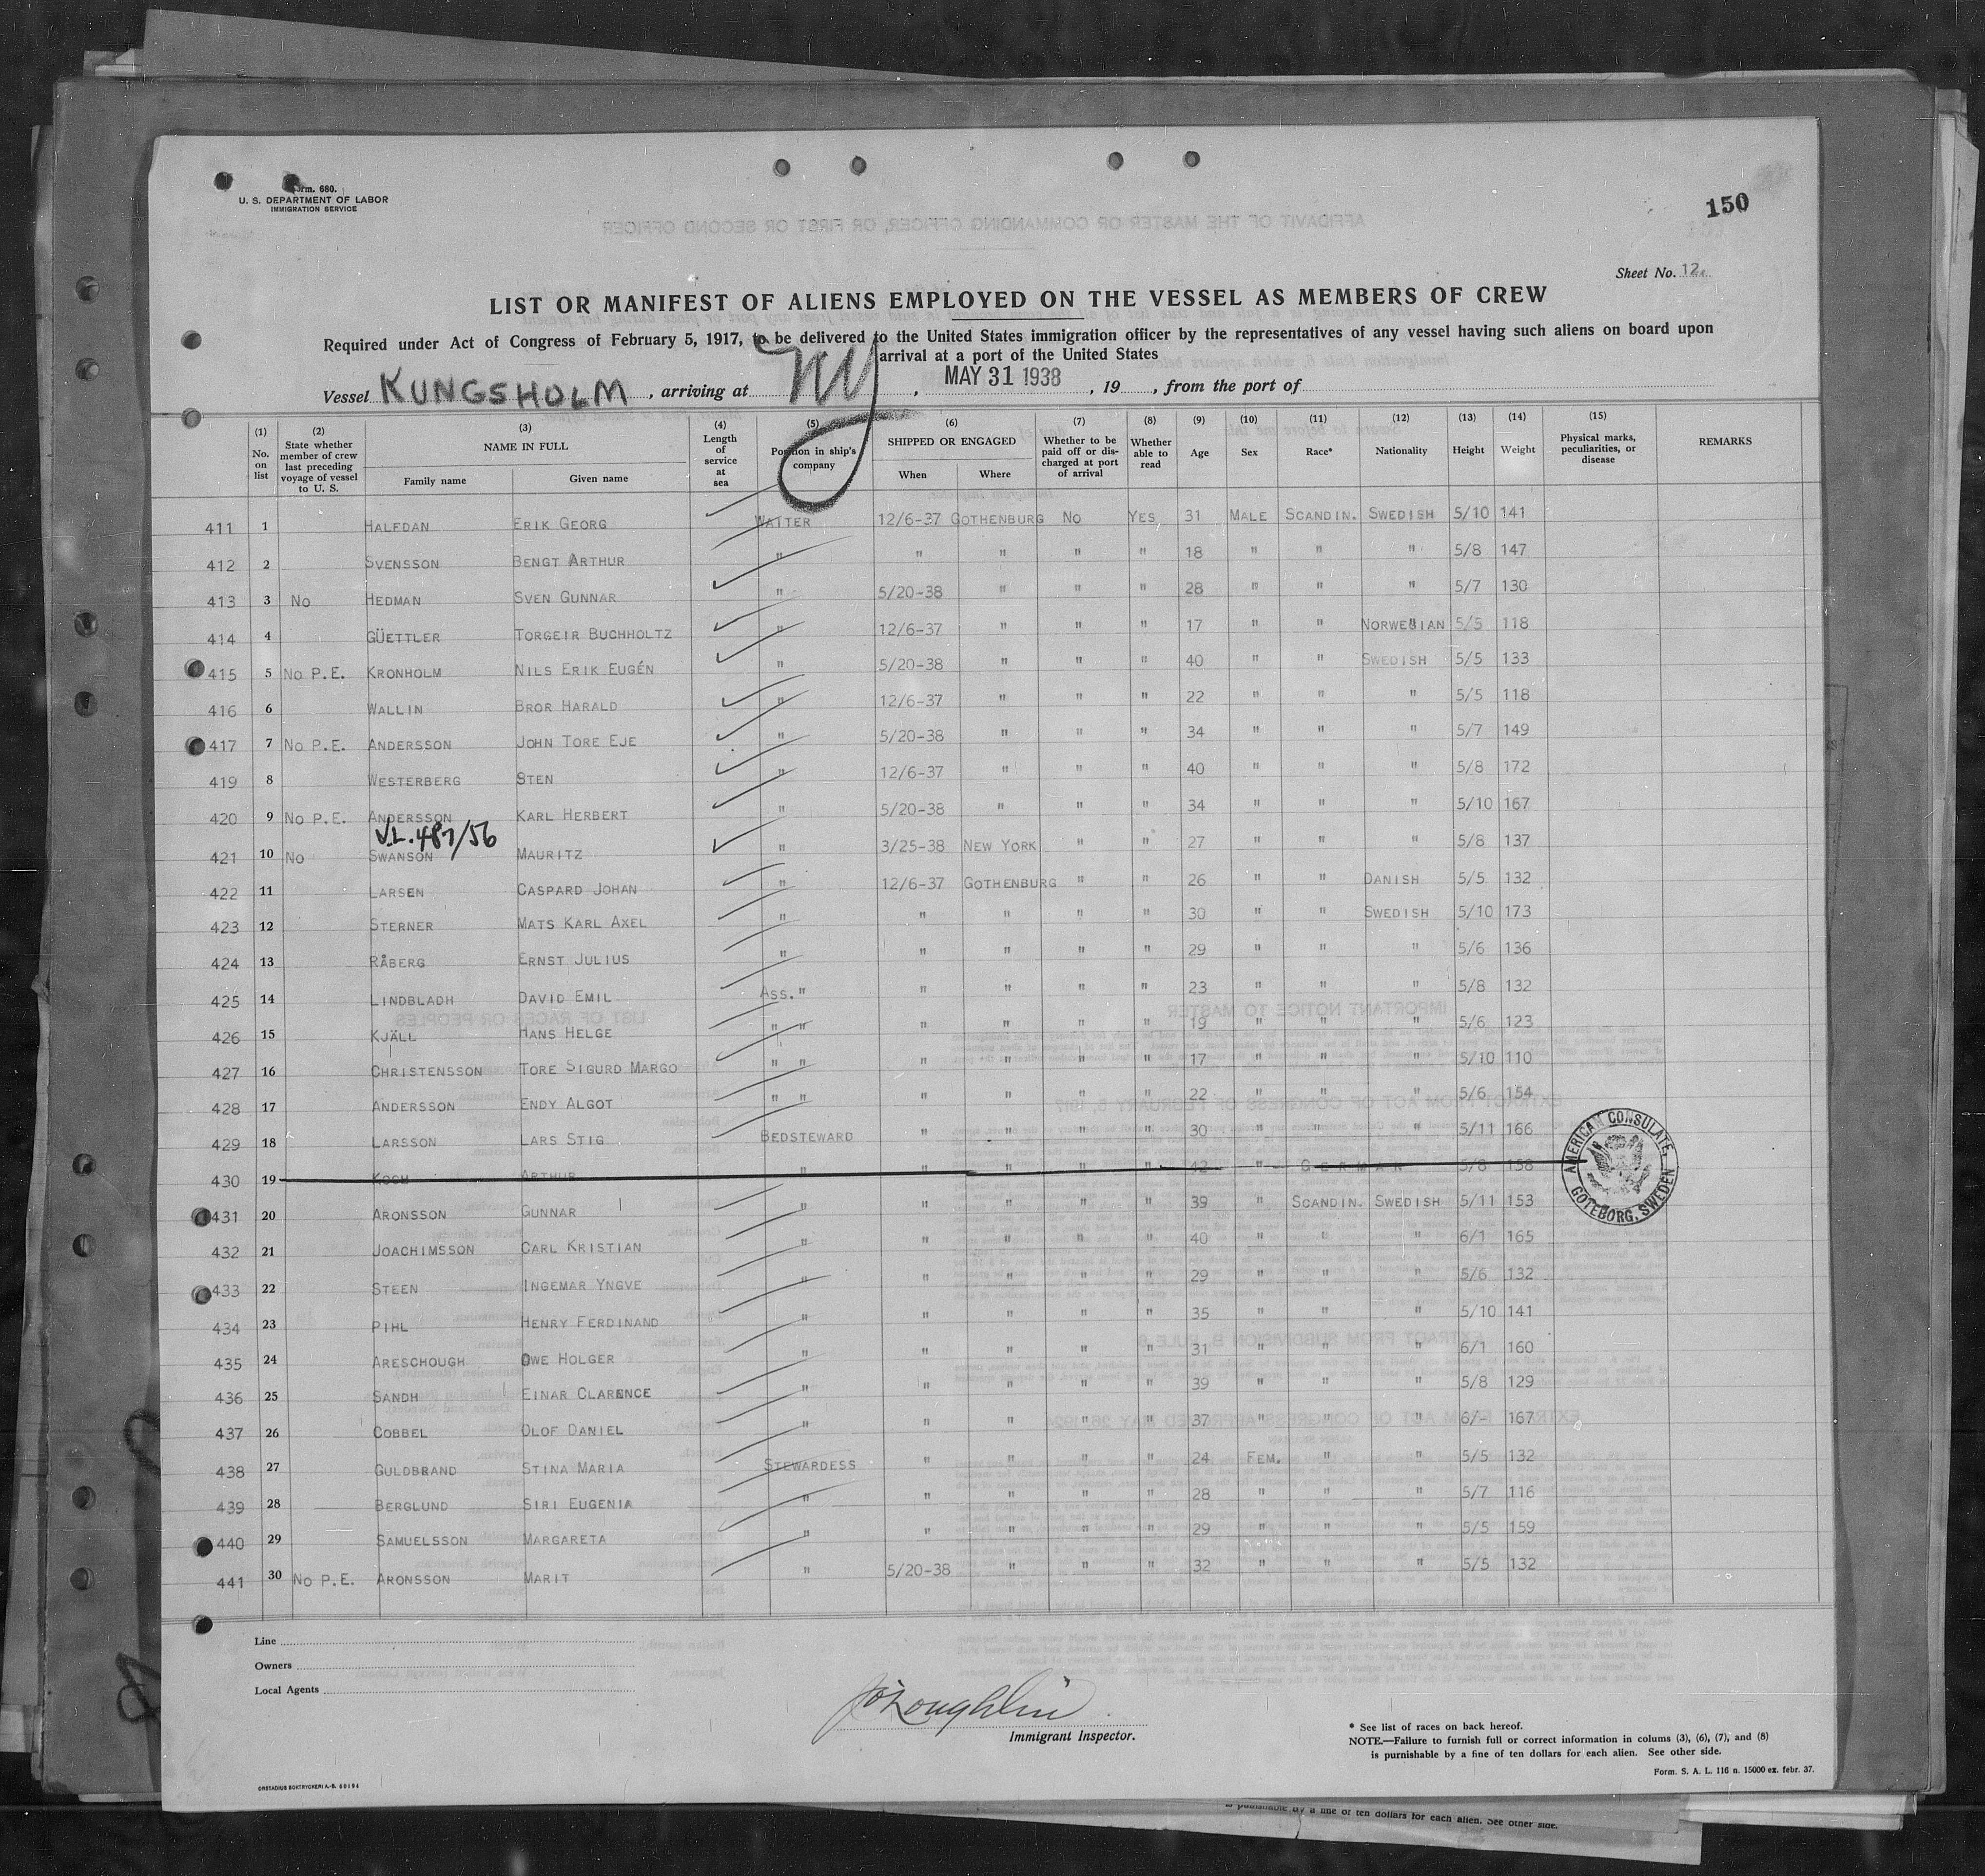 Form. 680.
U. S. DEPARTMENT OF LABOR
IMMIGRATION SERVICE
150
Sheet No. 12.
LIST OR MANIFEST OF ALIENS EMPLOYED ON THE VESSEL AS MEMBERS OF CREW
Required under Act of Congress of February 5, 1917, to be delivered to the United States immigration officer by the representatives of any vessel having such aliens on board upon
arrival at a port of the United States
Vessel KUNGSHOLM, arriving at NY, MAY 31 1938, 19, from the port of
(1) No. on list (2) State whether member of crew last preceding voyage of vessel to U. S. (3) NAME IN FULL Family name Given name (4) Length of service at sea (5) Position in ship's company (6) SHIPPED OR ENGAGED When Where (7) Whether to be paid off or discharged at port of arrival (8) Whether able to read (9) Age (10) Sex (11) Race* (12) Nationality (13) Height (14) Weight (15) Physical marks, peculiarities, or disease REMARKS
411 1 HALFDAN ERIK GEORG WAITER 12/6-37 GOTHENBURG NO YES 31 MALE SCANDIN. SWEDISH 5/10 141
412 2 SVENSSON BENGT ARTHUR " " " " " 18 " " " 5/8 147
413 3 NO HEDMAN SVEN GUNNAR " 5/20-38 " " " 28 " " " 5/7 130
414 4 GÜETTLER TORGEIR BUCHHOLTZ " 12/6-37 " " " 17 " " NORWEGIAN 5/5 118
415 5 NO P.E. KRONHOLM NILS ERIK EUGÉN " 5/20-38 " " " 40 " " SWEDISH 5/5 133
416 6 WALLIN BROR HARALD " 12/6-37 " " " 22 " " " 5/5 118
417 7 NO P.E. ANDERSSON JOHN TORE EJE " 5/20-38 " " " 34 " " " 5/7 149
419 8 WESTERBERG STEN " 12/6-37 " " " 40 " " " 5/8 172
420 9 NO P.E. ANDERSSON KARL HERBERT " 5/20-38 " " " 34 " " " 5/10 167
V.L. 487/56
421 10 NO SWANSON MAURITZ " 3/25-38 NEW YORK " " 27 " " " 5/8 137
422 11 LARSEN CASPARD JOHAN " 12/6-37 GOTHENBURG " " 26 " " DANISH 5/5 132
423 12 STERNER MATS KARL AXEL " " " " " 30 " " SWEDISH 5/10 173
424 13 RÅBERG ERNST JULIUS " " " " " 29 " " " 5/6 136
425 14 LINDBLADH DAVID EMIL ASS. " " " " " 23 " " " 5/8 132
426 15 KJÄLL HANS HELGE " " " " " " 19 " " " 5/6 123
427 16 CHRISTENSSON TORE SIGURD MARGO " " " " " " 17 " " " 5/10 110
428 17 ANDERSSON ENDY ALGOT " " " " " " 22 " " " 5/6 154
429 18 LARSSON LARS STIG BEDSTEWARD " " " " 30 " " " 5/11 166
430 19 KOCH ARTHUR " " " " " 42 " GERMAN 5/8 158
431 20 ARONSSON GUNNAR " " " " " 39 " SCANDIN. SWEDISH 5/11 153
432 21 JOACHIMSSON CARL KRISTIAN " " " " " 40 " " " 6/1 165
433 22 STEEN INGEMAR YNGVE " " " " " 29 " " " 5/6 132
434 23 PIHL HENRY FERDINAND " " " " " 35 " " " 5/10 141
435 24 ARESCHOUGH OWE HOLGER " " " " " 31 " " " 6/1 160
436 25 SANDH EINAR CLARENCE " " " " " 39 " " " 5/8 129
437 26 COBBEL OLOF DANIEL " " " " " 37 " " " 6/- 167
438 27 GULDBRAND STINA MARIA STEWARDESS " " " " 24 FEM. " " 5/5 132
439 28 BERGLUND SIRI EUGENIA " " " " " 28 " " " 5/7 116
440 29 SAMUELSSON MARGARETA " " " " " 29 " " " 5/5 159
441 30 NO P.E. ARONSSON MARIT " 5/20-38 " " " 32 " " " 5/5 132
AMERICAN CONSULATE
GOTEBORG, SWEDEN
Line
Owners
Local Agents
JO'Loughlin
Immigrant Inspector.
* See list of races on back hereof.
NOTE.—Failure to furnish full or correct information in colums (3), (6), (7), and (8)
is punishable by a fine of ten dollars for each alien. See other side.
Form. S. A. L. 116 n. 15000 ex. febr. 37.
ORSTADIUS BOKTRYCKERI A.-B. 60194
is punishable by a fine of ten dollars for each alien. See other side.